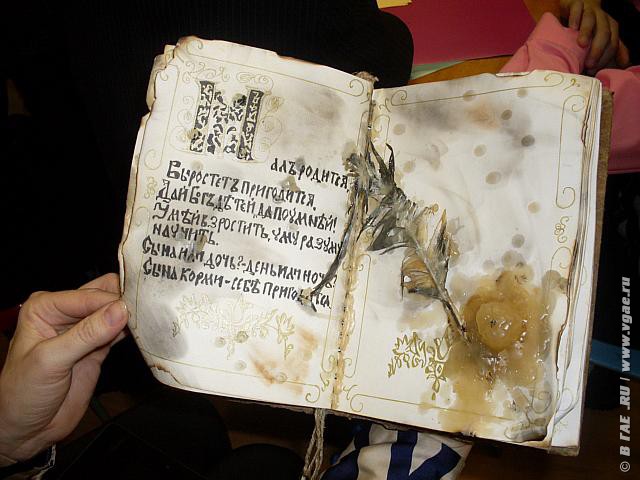 М
алъ родится,
Выростетъ пригодится.
Дай Богъ дѣтей, да поумнѣй!
Умѣй взростить, уму разуму
научить.
Сына или дочь? - день или ночь?
Сына корми - себѣ пригодится.
© В ГАЕ .RU | www.vgae.ru